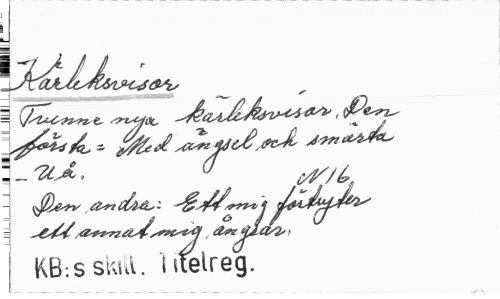 Kärleksvisor
Tvenne nya kärleksvisor. Den
första = Med ängsel och smärta
- U.å.
N 16
Den andra: Ett mig förtryter
ett annat mig ångrar.
KB:s skill. Titelreg.